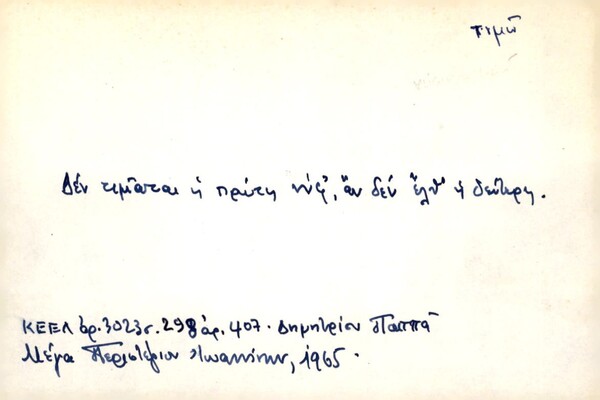 τιμῶ
Δέν τιμᾶται ἡ πρώτη νύφ', ἄν δέν ἔλθ' ἡ δεύτερη.
ΚΕΕΛ ἀρ. 3023 σ. 298 ἀρ. 407. Δημητρίου Παππᾶ
Μέγα Περιστέριον Ἰωαννίνων, 1965.